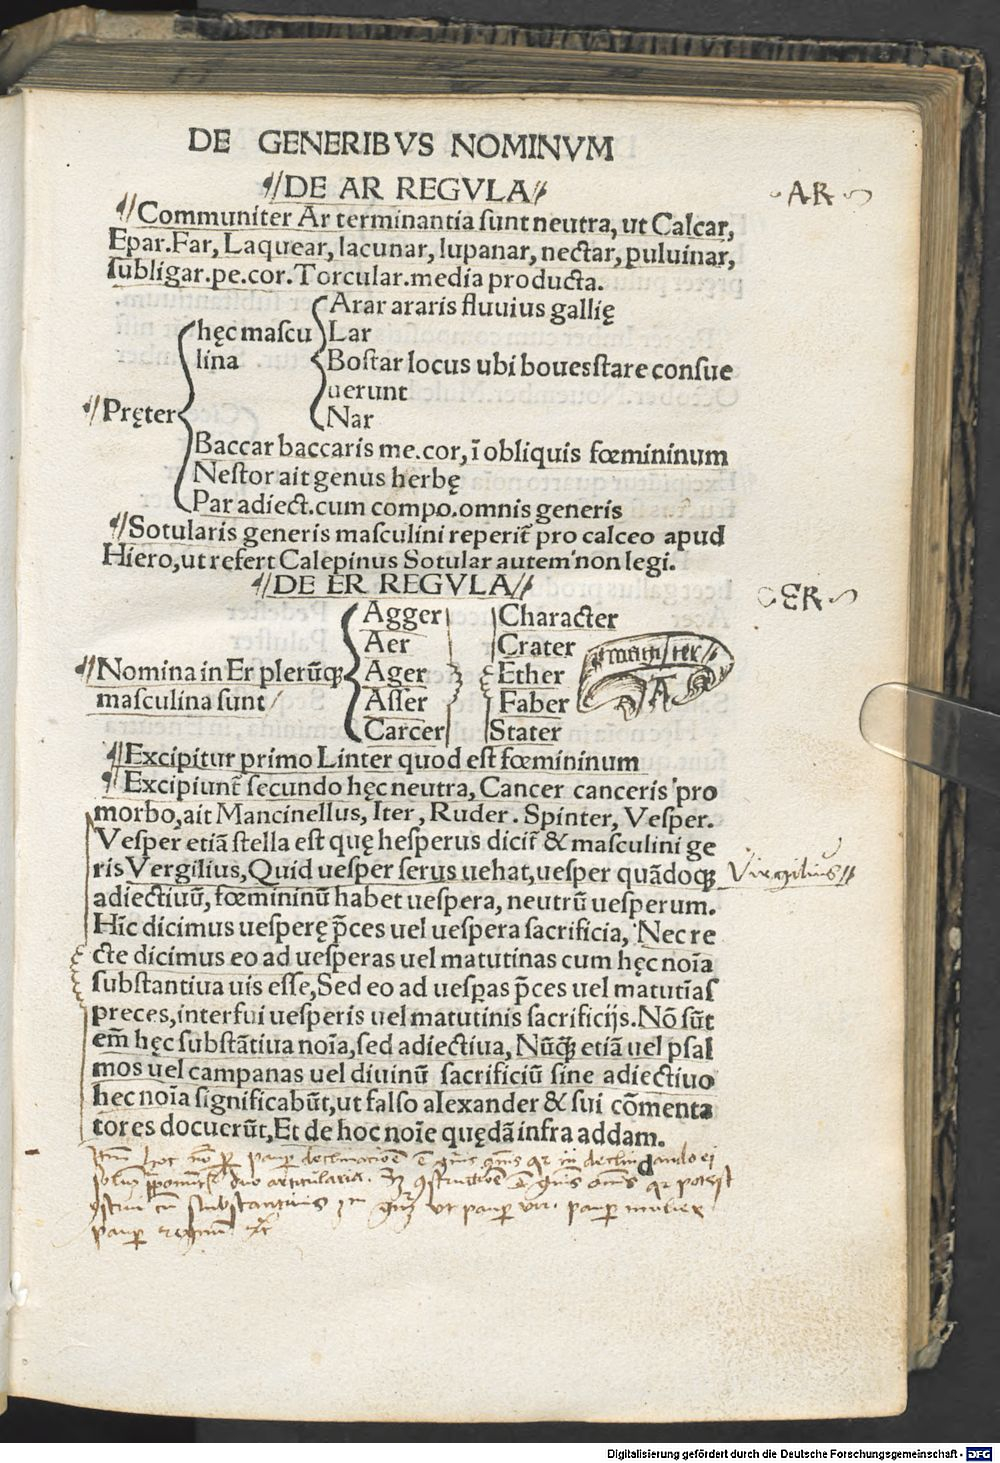 DE GENERIBVS NOMINVM
DE AR REGVLA
AR
Communiter Ar terminantia ſunt neutra, ut Calcar,
Epar. Far, Laquear, lacunar, lupanar, nectar, puluinar,
ſubligar. pe. cor. Torcular. media producta.
Pręter
hęc maſcu
lina
Arar araris fluuius gallię
Lar
Boſtar locus ubi boues ſtare conſue
uerunt
Nar
Baccar baccaris me. cor, ī obliquis fœmininum
Neſtor ait genus herbę
Par adiect. cum compo. omnis generis
Sotularis generis maſculini reperit̃ pro calceo apud
Hiero, ut refert Calepinus Sotular autem non legi.
DE ER REGVLA
ER
Nomina in Er plerūq꜒
maſculina ſunt
Agger
Aer
Ager
Aſſer
Carcer
Character
Crater
Ether
Faber
Stater
magiſter
Excipitur primo Linter quod eſt fœmininum
Excipiunt̃ ſecundo hęc neutra, Cancer canceris pro
morbo, ait Mancinellus, Iter, Ruder. Spinter, Veſper.
Veſper etiā ſtella eſt quę heſperus dicit̃ & maſculini ge
ris Vergilius, Quid ueſper ſerus uehat, ueſper quādoq꜒
Virgilius
adiectiuū, fœmininū habet ueſpera, neutrū ueſperum.
Hīc dicimus ueſperę p̄ces uel ueſpera ſacrificia, Nec re
cte dicimus eo ad ueſperas uel matutinas cum hęc noīa
ſubſtantiua uis eſſe, Sed eo ad ueſꝑas p̄ces uel matutīas
preces, interfui ueſperis uel matutinis ſacrificijs. Nō ſūt
em̄ hęc ſubſtātiua noīa, ſed adiectiua, Nūq̄ꝫ etiā uel pſal
mos uel campanas uel diuinū ſacrificiū ſine adiectiuo
hec noīa ſignificabūt, ut falſo alexander & ſui cōmenta
tores docuerūt, Et de hoc noīe quędā infra addam.